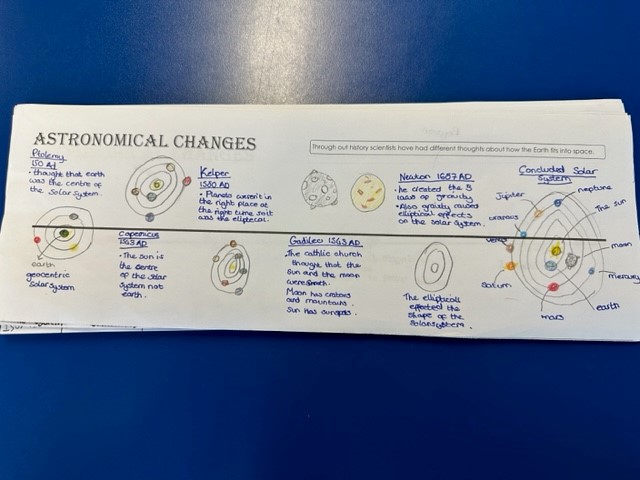 ASTRONOMICAL CHANGES
Through out history scientists have had different thoughts about how the Earth fits into space.
Ptolemy
150 AD
• thought that earth
was the centre of
the Solar System.
earth
geocentric
Solar System
Copernicus
1543 AD
• The sun is
the centre
of the solar
System not
earth.
Kelper
1580 AD
• Planets weren't in
the right place at
the right time so it
was the elliptecal.
Galileo 1563 AD
• The cathlic church
thought that the
sun and the moon
were smooth.
Moon has craters
and mountains.
Sun has sunspots.
Newton 1687 AD
• he created the 3
laws of gravity
• Also gravity caused
elliptical effects
on the solar System.
The
effected the
shape of the
Solar System.
Concluded Solar
System
Jupiter
neptune
The sun
uranus
venus
moon
mercury
Saturn
earth
mars